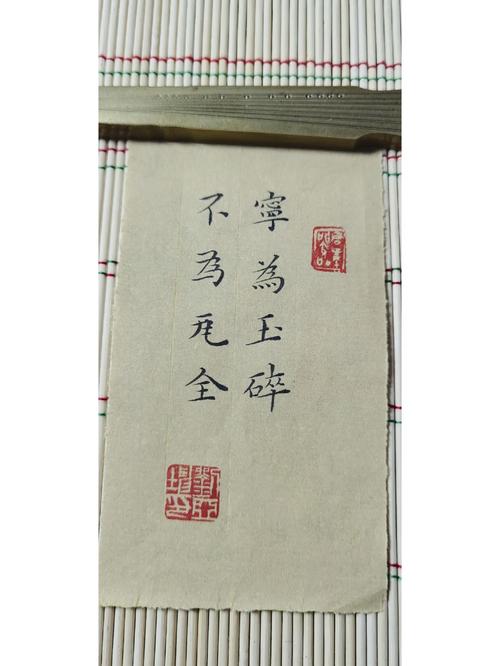 寧為玉碎
不為瓦全